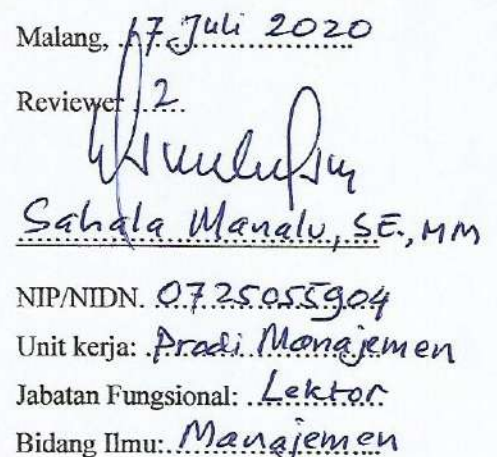 Malang, 17 Juli 2020
Reviewer 2
Sahala Manalu, SE., MM
NIP/NIDN. 0725055904
Unit kerja: Prodi Manajemen
Jabatan Fungsional: Lektor
Bidang Ilmu: Manajemen